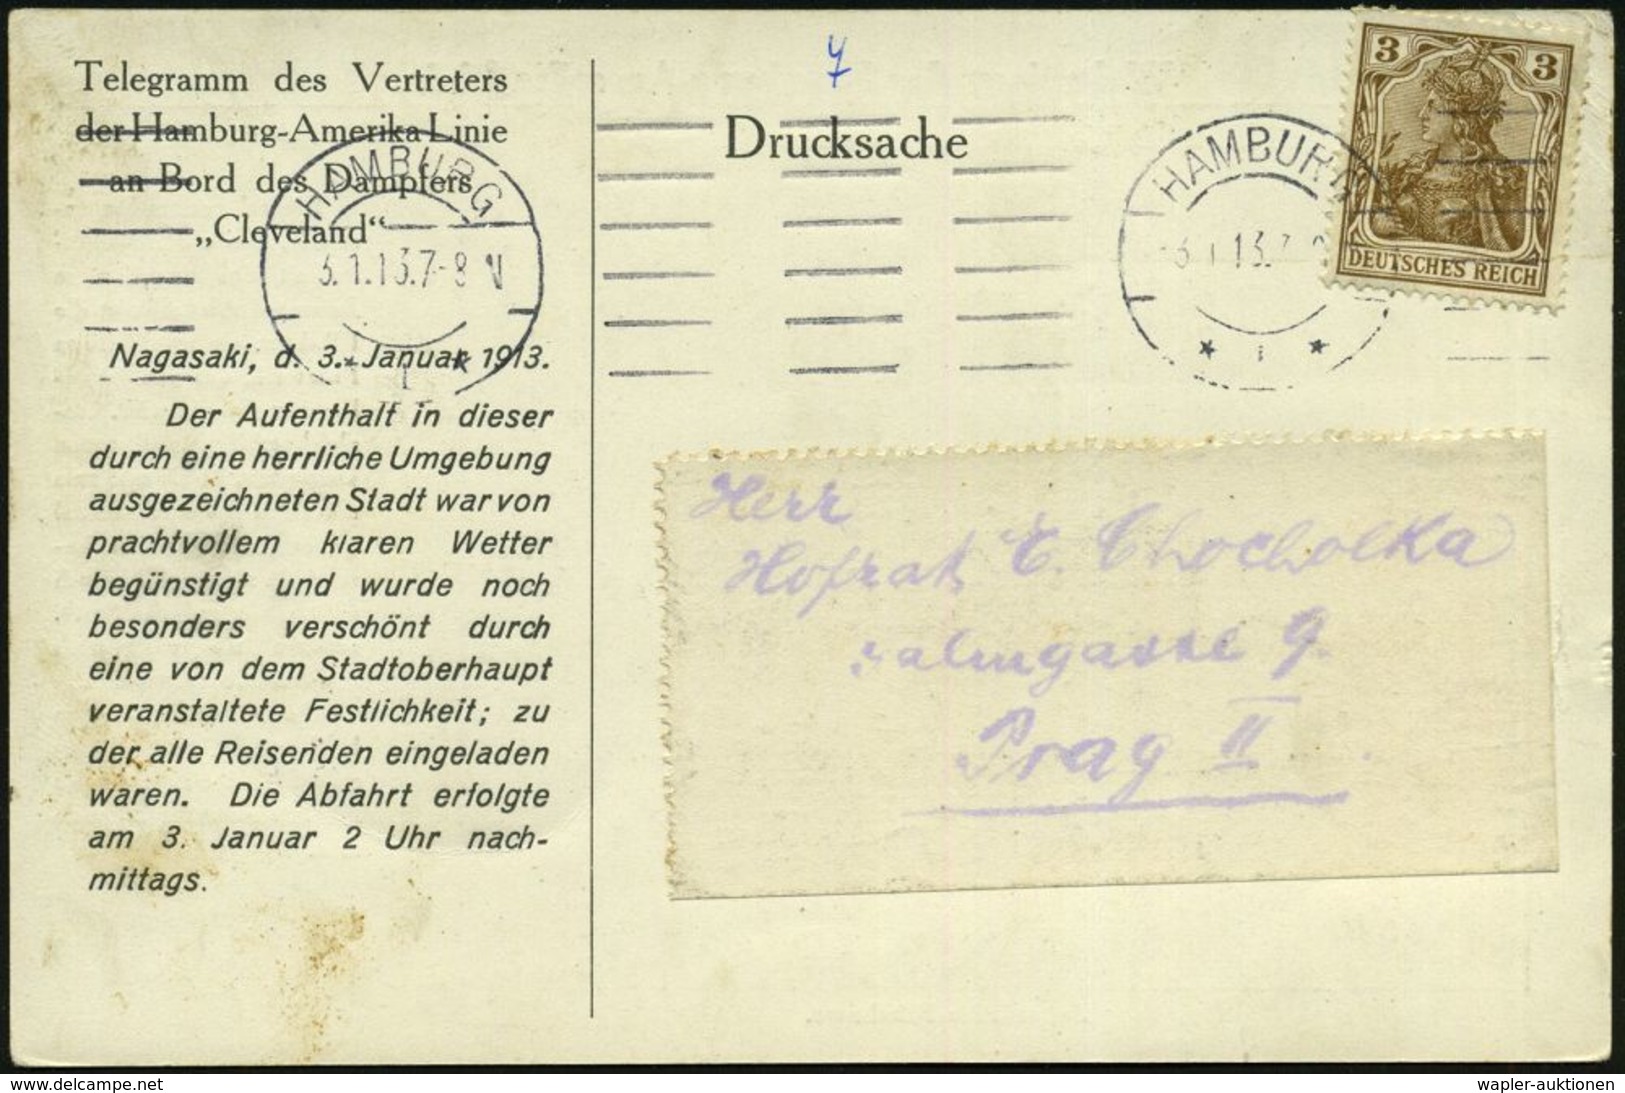 Telegramm des Vertreters
der Hamburg-Amerika Linie
an Bord des Dampfers
„Cleveland“
Nagasaki, d. 3. Januar 1913.
Der Aufenthalt in dieser
durch eine herrliche Umgebung
ausgezeichneten Stadt war von
prachtvollem klaren Wetter
begünstigt und wurde noch
besonders verschönt durch
eine von dem Stadtoberhaupt
veranstaltete Festlichkeit; zu
der alle Reisenden eingeladen
waren. Die Abfahrt erfolgte
am 3. Januar 2 Uhr nach-
mittags.
HAMBURG
3.1.13.7-8 N
* 1 *
Drucksache
HAMBURG
3 1 13.7
* 1 *
3 3
DEUTSCHES REICH
Herr
Hofrat E. Chocholka
9.
Prag II
www.delcampe.net
wapler-auktionen